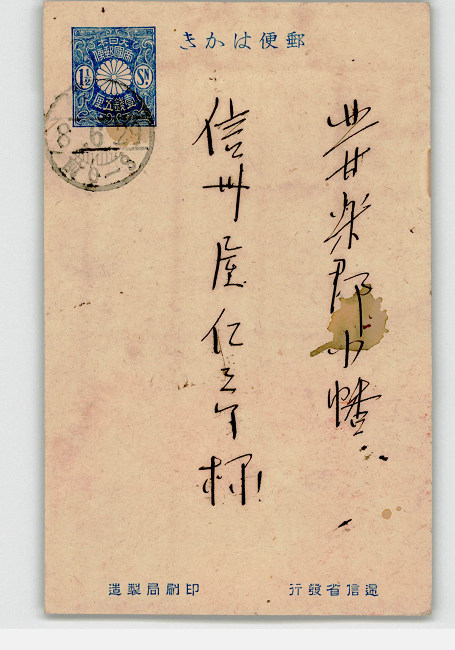 郵便はかき
大日本
帝國郵便
1½ SN.
壹錢五厘
8.6.29
北甘楽郡小幡
信州屋仁三郎様
逓信省發行
印刷局製造